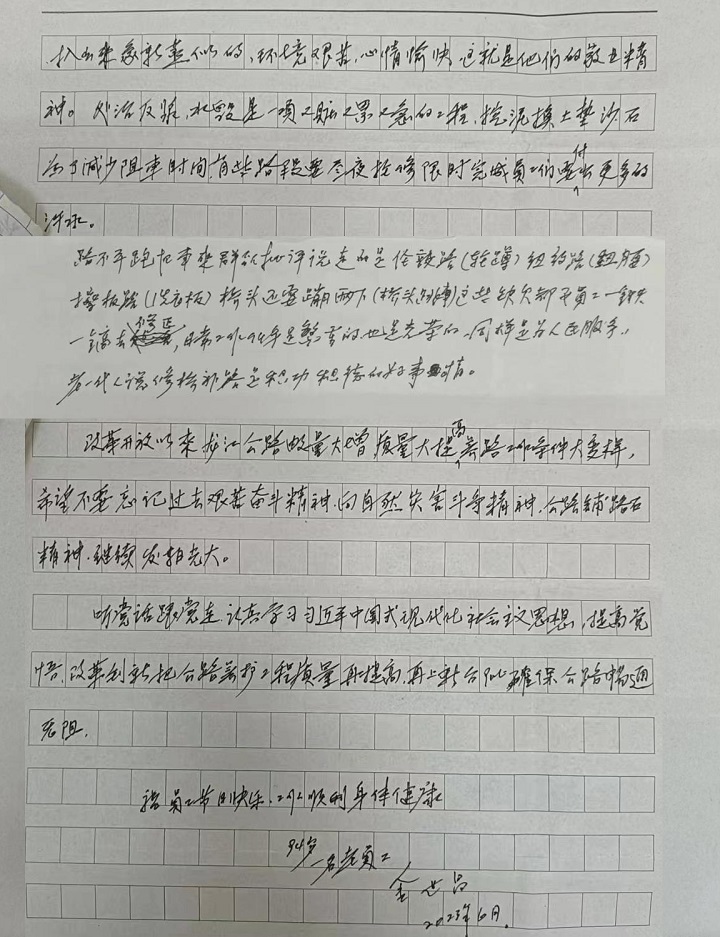 扒出来象新盖似的,环境艰苦,心情愉快,这就是他们的敬业精
神。处治反浆,水毁是一项又脏又累又急的工程,挖泥换土垫沙石
为了减少阻车时间,有些路段要昼夜抢修限时完成员工们要付出更多的
汗水。
路不平跑起車来群众批评说走的是伦敦路(轮蹲)纽约路(
搓板路(洗衣板)桥头还要蹦两下(桥头跳)这些缺欠都是员工一锹
一镐去修正,日常工作年是繁重的也是光荣的,同样是为人民服务,
老一代人说修桥补路是积功积德的好事情。
改革开放以来龙江公路数量大增质量大提高养路工作条件大变样,
希望不要忘记过去艰苦奋斗精神,向自然灾害斗争精神,公路铺路石
精神,继续发扬光大。
听党话跟党走,认真学习习近平中国式现代化社会主义思想,提高觉
悟,改革创新把公路养护工程质量再提高,再上新台阶确保公路畅通
无阻,
祝员工节日快乐,工作顺利身体健康
94岁
一名老员工
金世
2023年6月,